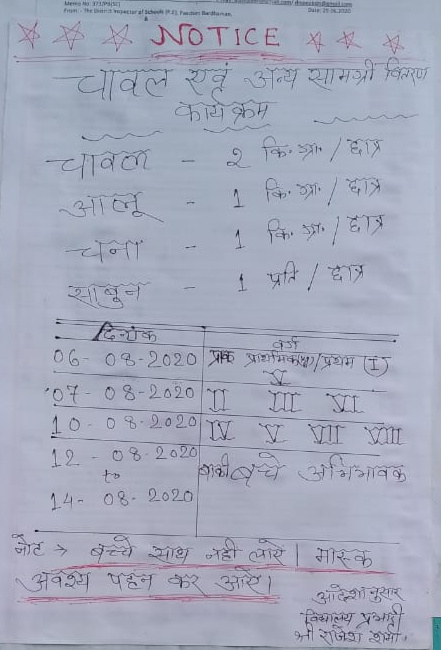 Memo No. 373/PS(SC)
From - The District Inspector of Schools (P.E), Paschim Bardhaman.
Date: 29.06.2020
NOTICE
चावल एवं अन्य सामग्री वितरण
कार्यक्रम
चावल - २ कि.ग्रा. / छात्र
आलू - 1 कि.ग्रा. / छात्र
चना - 1 कि.ग्रा. / छात्र
साबुन - 1 प्रति / छात्र
दिनांक वर्ग
06-08-2020 प्राक प्राथमिक/प्रथम (I)
V
07-08-2020 II III VI
10-08-2020 IV V VII VIII
12-08-2020 बाकी बच्चे अभिभावक
to
14-08-2020
नोट → बच्चे साथ नहीं लायें। मास्क
अवश्य पहन कर आयें।
आदेशानुसार
विद्यालय प्रभारी
श्री राजेश शर्मा